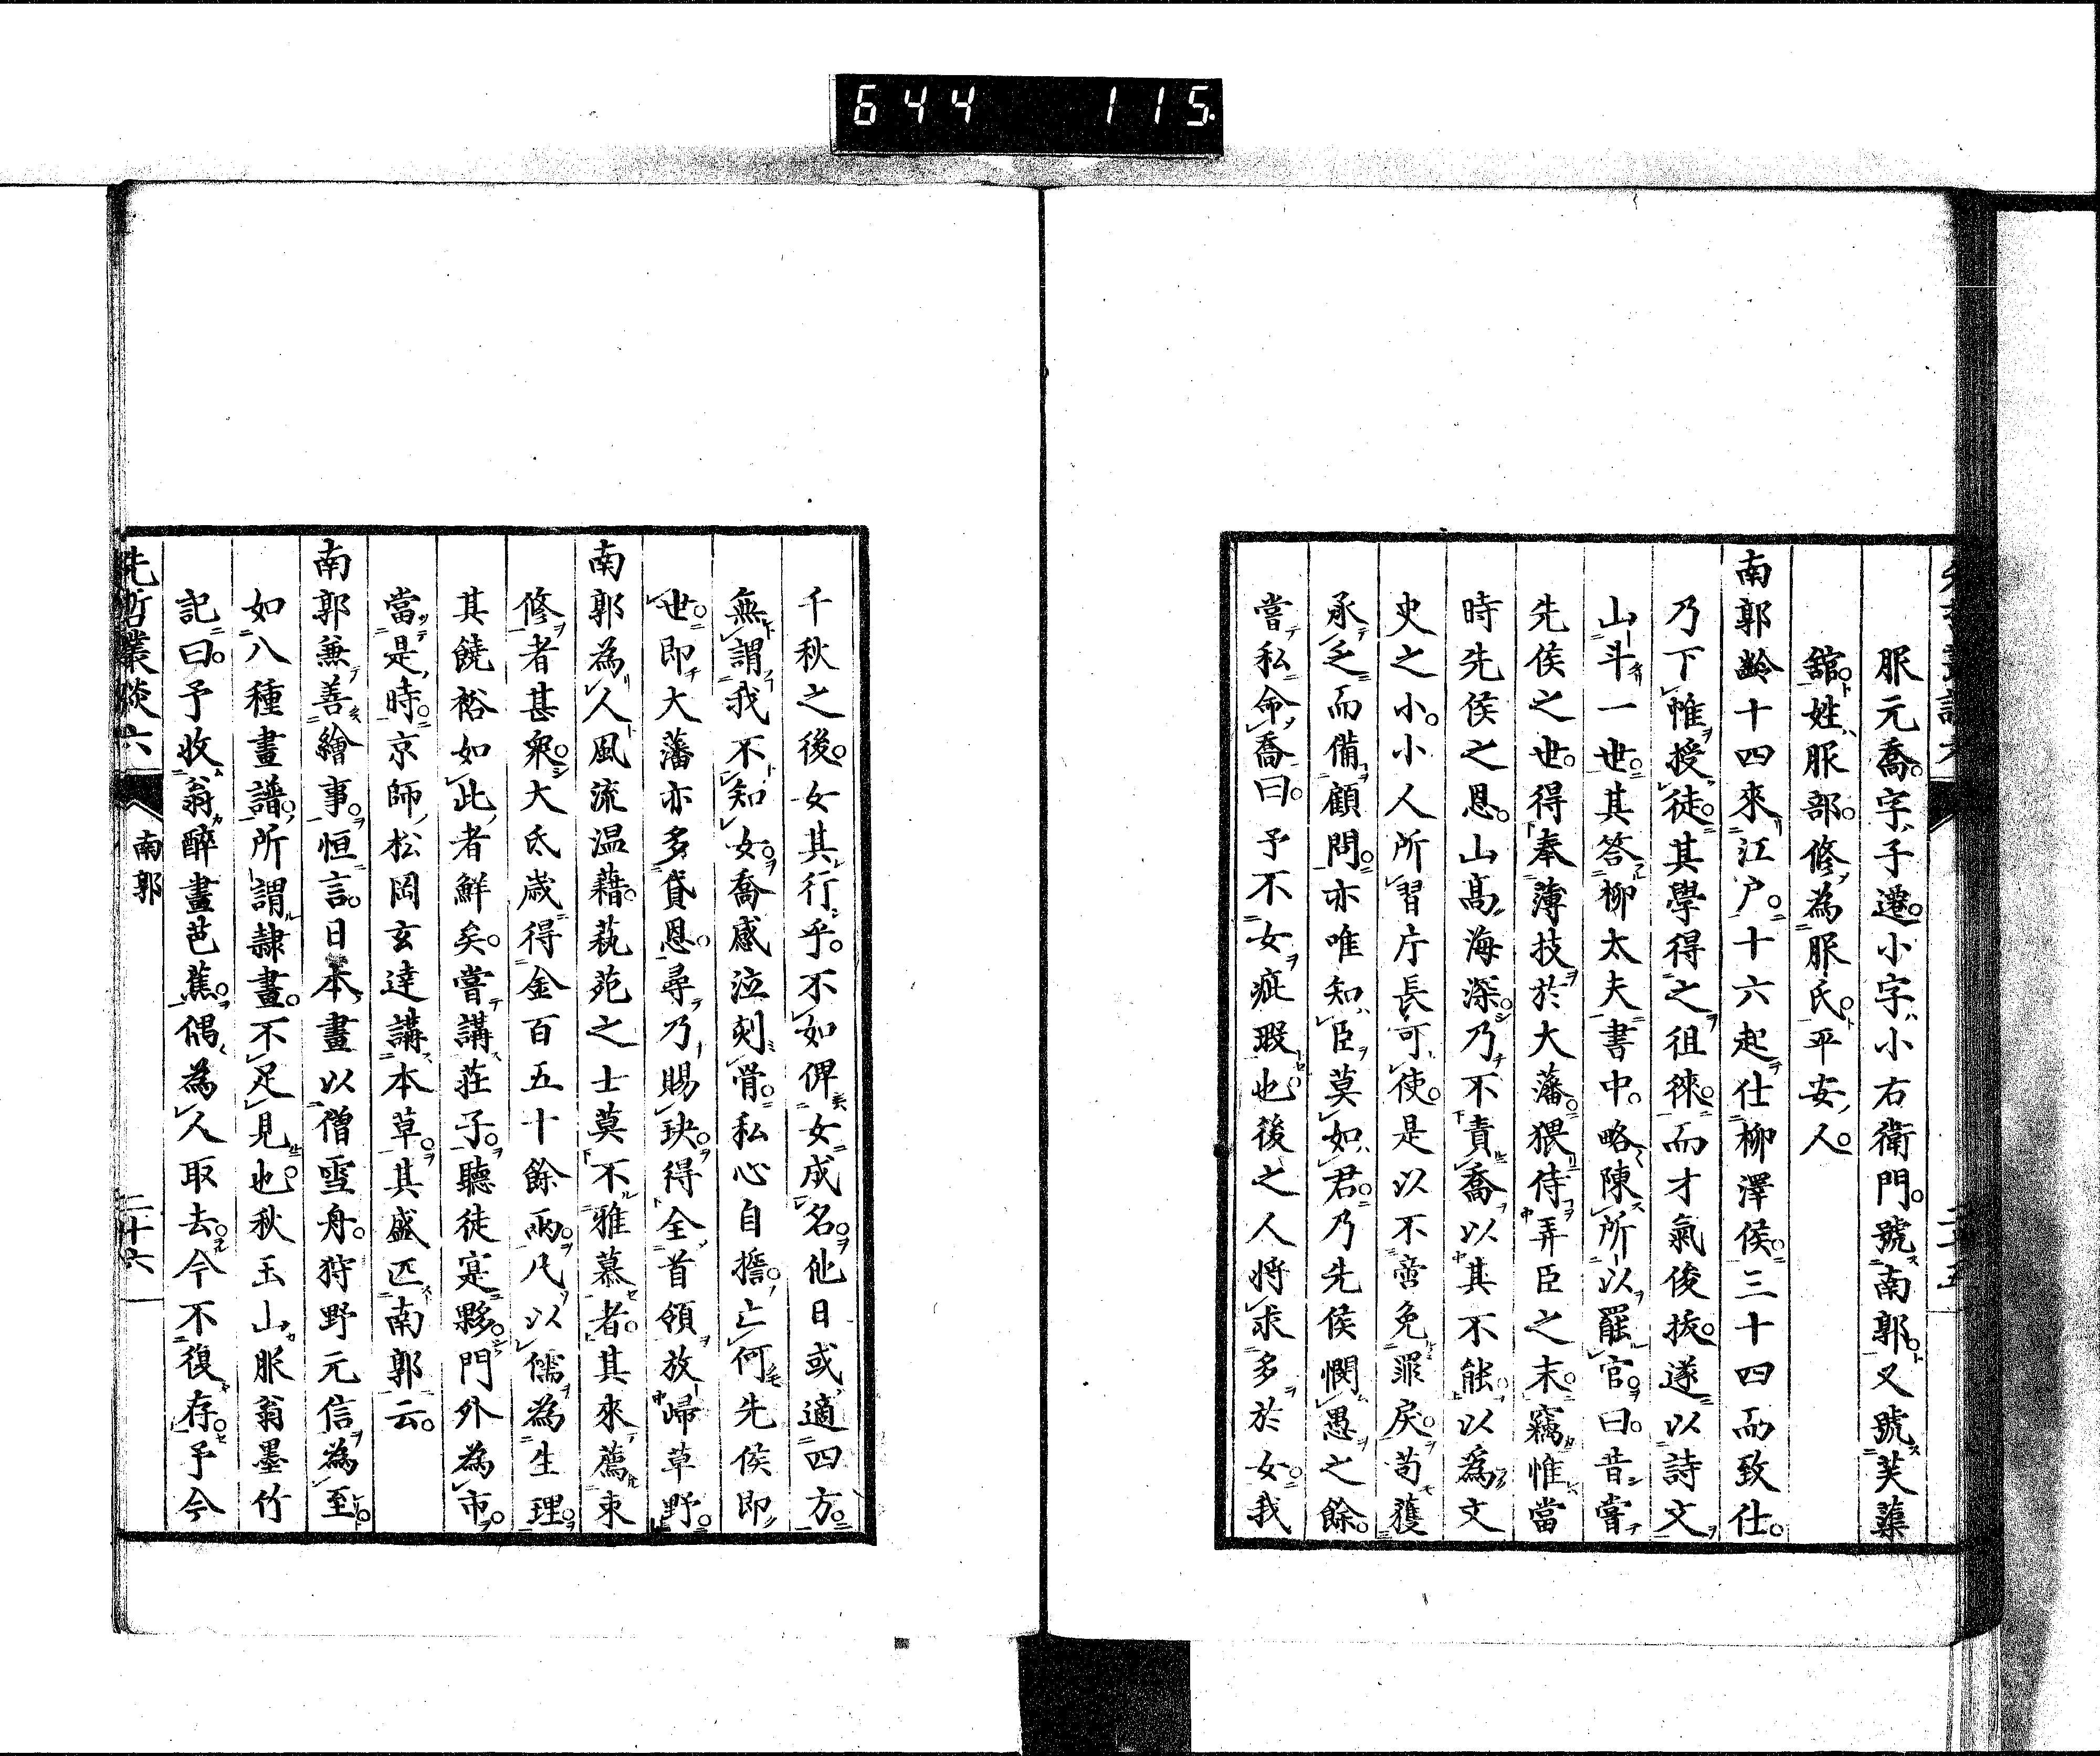 644 115
服元喬。字子遷。小字小右衛門。號南郭。又號芙蕖
館。姓服部。修為服氏。平安人。
南郭齡十四來江户。十六起仕柳澤侯。三十四而致仕。
乃下帷授徒。其學得之徂徠。而才氣俊拔。遂以詩文
山斗一世。其答柳太夫書中。略陳所以罷官。曰。昔嘗
先侯之世。得奉薄技於大藩。猥侍弄臣之末。竊惟當
時先侯之恩。山高海深。乃不責喬以其不能。以為文
史之小。小人所習。片長可使。是以不啻免罪戾。苟獲
承乏而備顧問。亦唯知臣莫如君。乃先侯憫愚之餘。
嘗私命喬曰。予不女疵瑕也。後之人將求多於女。我
千秋之後。女其行乎。不如俾女成名。他日或適四方。
無謂我不知女。喬感泣刻骨。私心自擔。亡何先侯即
世。即大藩亦多貸恩。尋乃賜玦。得全首領放歸草野。
南郭為人風流温藉。蓺苑之士莫不雅慕者。其來薦束
修者甚衆。大氐歲得金百五十餘兩。凡以儒為生理。
其饒裕如此者鮮矣。嘗講莊子。聽徒寔夥。門外為市。
當是時。京師松岡玄達講本草。其盛匹南郭云。
南郭兼善繪事。恒言。日本畫以僧雪舟。狩野元信為至。
如八種畫譜。所謂隷畫。不足見也。秋玉山服翁墨竹
記曰。予收翁醉畫芭蕉。偶為人取去。今不復存。予今
先哲叢談六
南郭
二十六